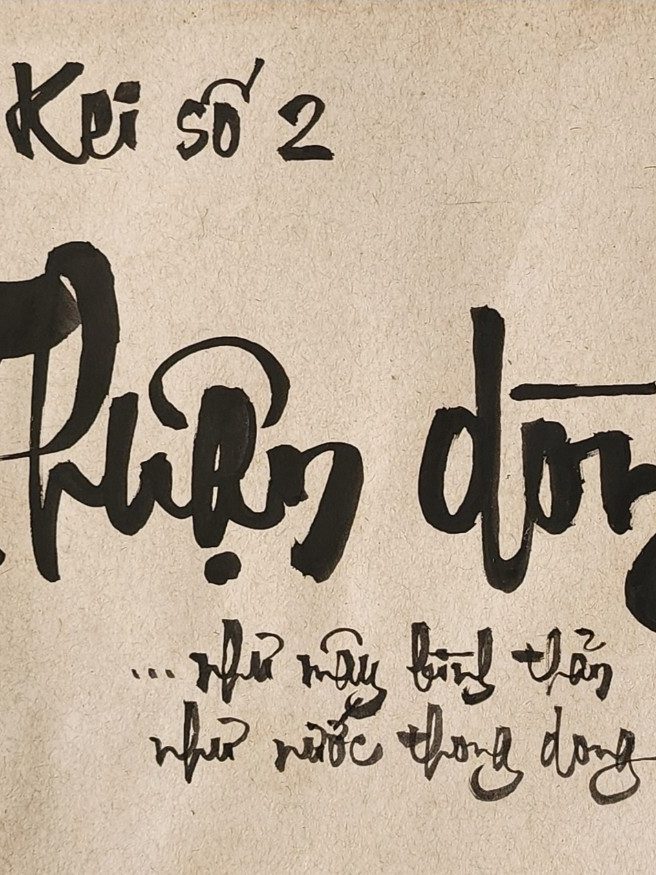 Kei số 2
Thuận dòng
... như mây bình thản
như nước thong dong